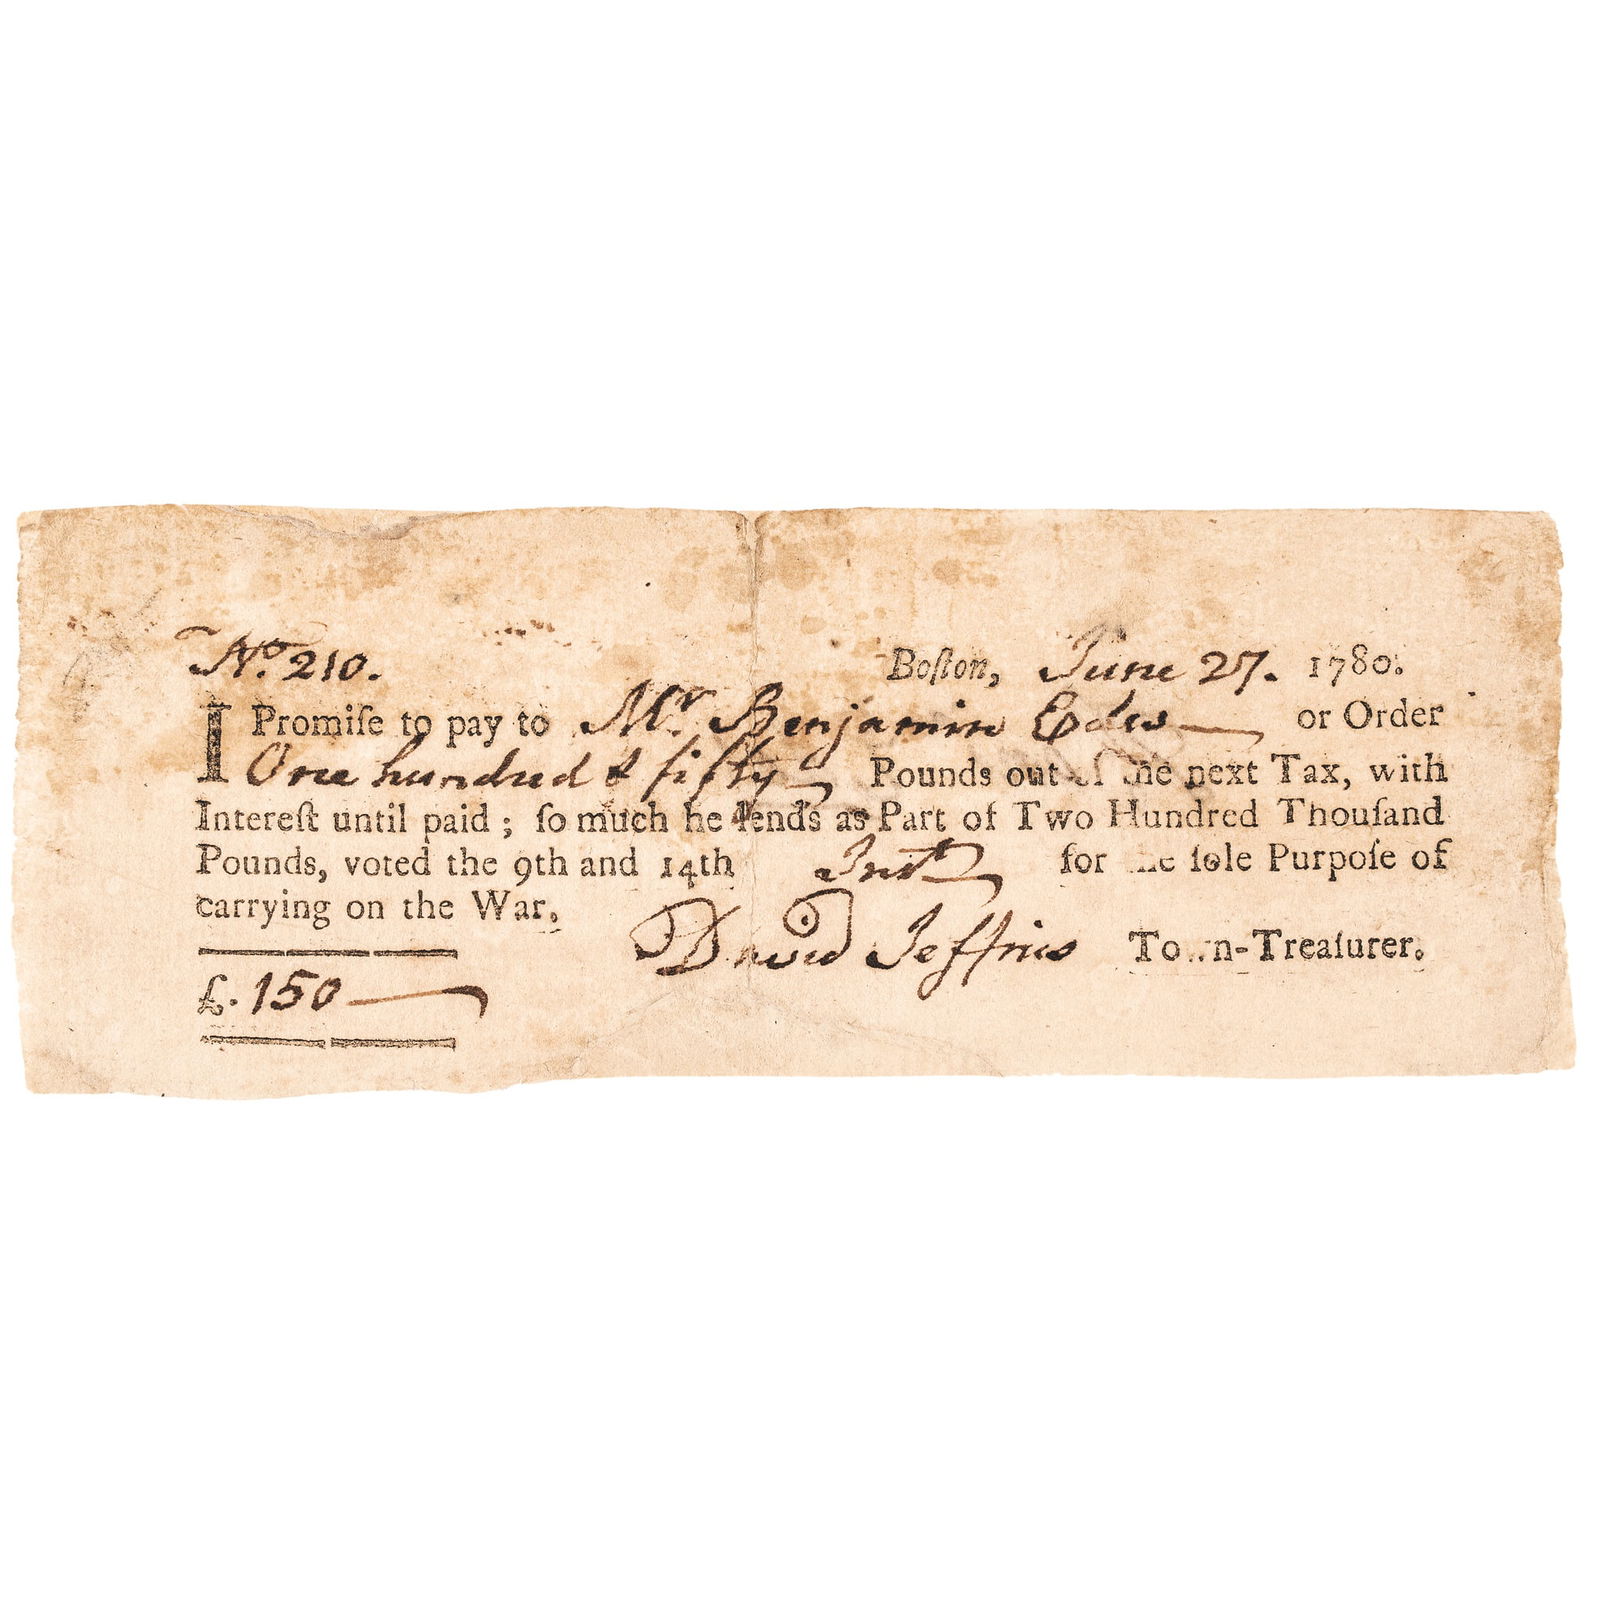 No. 210. Boſton, June 27. 1780.
I Promiſe to pay to Mr. Benjamin Edes or Order
One hundred & fifty Pounds out of the next Tax, with
Intereſt until paid; ſo much he lends as Part of Two Hundred Thouſand
Pounds, voted the 9th and 14th Inst. for the ſole Purpoſe of
carrying on the War.
David Jeffries Town-Treaſurer.
£. 150